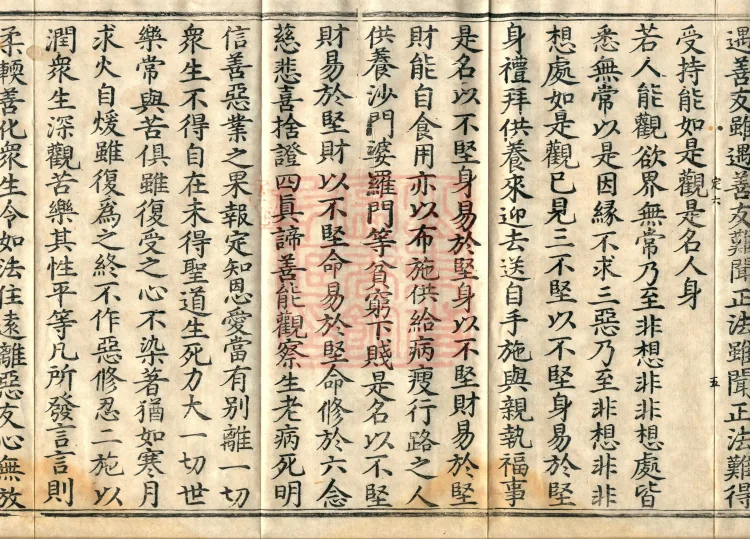 遇善友雖遇善友難聞正法雖聞正法難得
受持能如是觀是名人身
定六
五
若人能觀欲界無常乃至非想非非想處皆
悉無常以是因緣不求三惡乃至非想非非
想處如是觀已見三不堅以不堅身易於堅
身禮拜供養來迎去送自手施與親執福事
是名以不堅身易於堅身以不堅財易於堅
財能自食用亦以布施供給病瘦行路之人
供養沙門婆羅門等貧窮下賤是名以不堅
財易於堅財以不堅命易於堅命修於六念
慈悲喜捨證四眞諦善能觀察生老病死明
信善惡業之果報定知恩愛當有別離一切
衆生不得自在未得聖道生死力大一切世
樂常與苦俱雖復受之心不染著猶如寒月
求火自煖雖復爲之終不作惡修忍二施以
潤衆生深觀苦樂其性平等凡所發言言則
柔輭善化衆生令如法住遠離惡友心無放